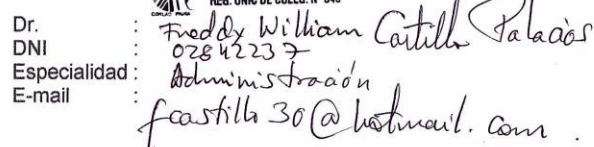 REG. UNIC DE COLEG. N° 046
Dr. : Freddy William Castillo Palacios
DNI : 02842237
Especialidad : Administración
E-mail : fcastillo30@hotmail.com.